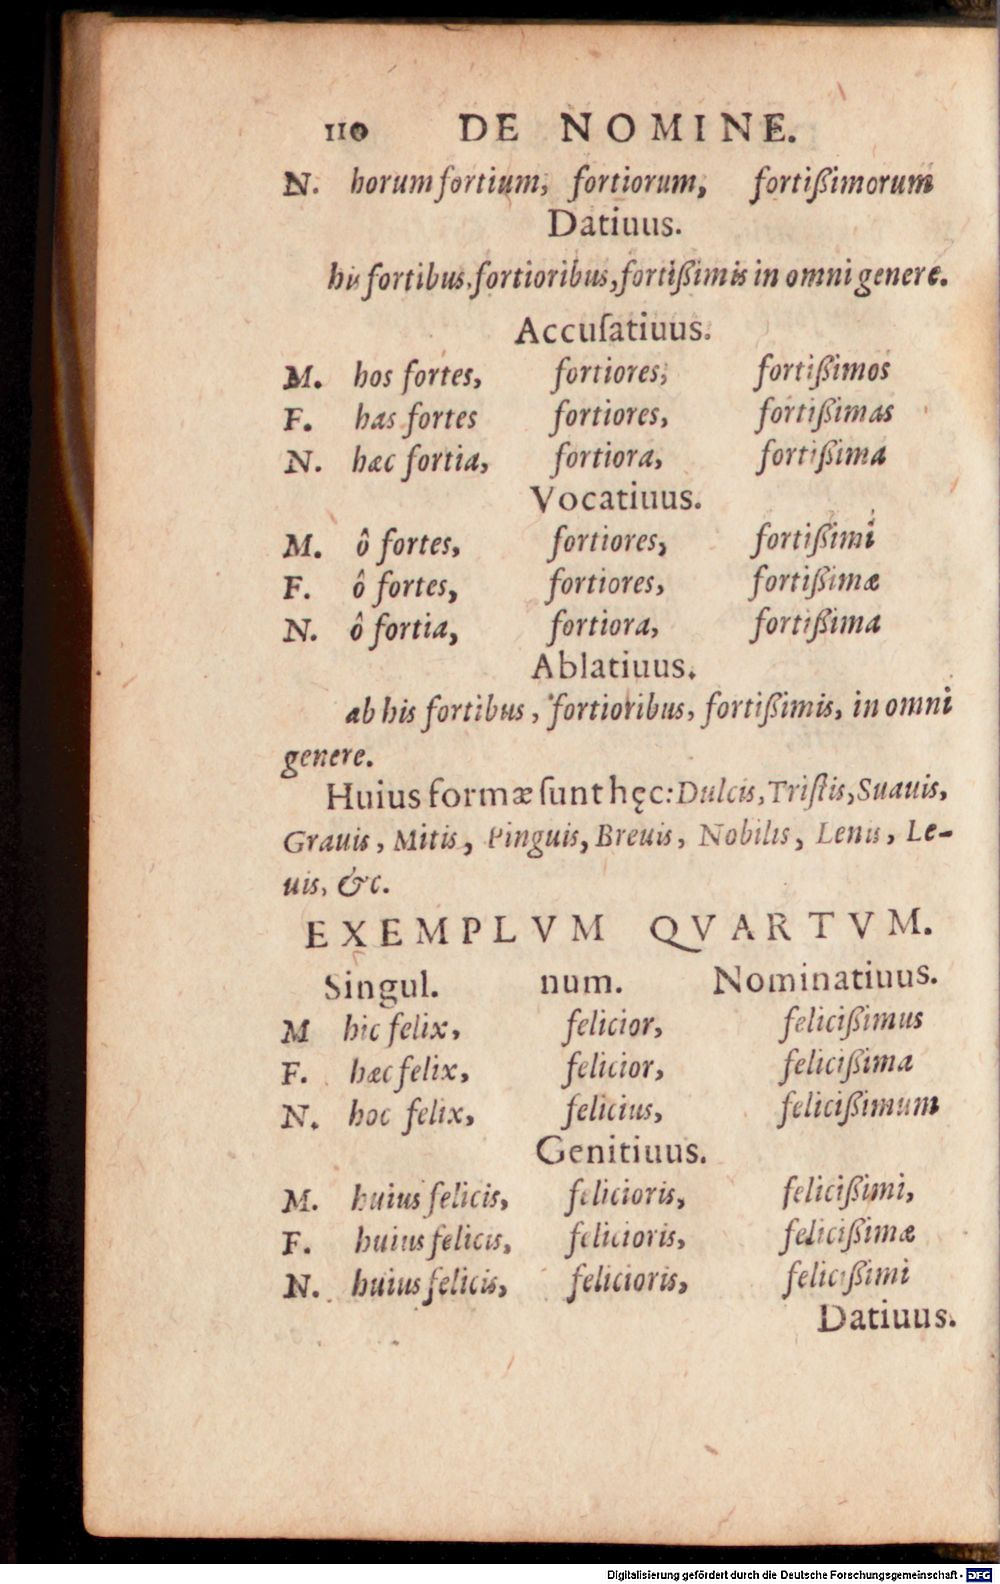 110 DE NOMINE.
N. horum fortium, fortiorum, fortißimorum
Datiuus.
his fortibus, fortioribus, fortißimis in omni genere.
Accuſatiuus.
M. hos fortes, fortiores, fortißimos
F. has fortes fortiores, fortißimas
N. hæc fortia, fortiora, fortißima
Vocatiuus.
M. ô fortes, fortiores, fortißimi
F. ô fortes, fortiores, fortißimæ
N. ô fortia, fortiora, fortißima
Ablatiuus.
ab his fortibus, fortioribus, fortißimis, in omni
genere.
Huius formæ ſunt hęc: Dulcis, Triſtis, Suauis,
Grauis, Mitis, Pinguis, Breuis, Nobilis, Lenis, Le-
uis, &c.
EXEMPLVM QVARTVM.
Singul. num. Nominatiuus.
M hic felix, felicior, felicißimus
F. hæc felix, felicior, felicißima
N. hoc felix, felicius, felicißimum
Genitiuus.
M. huius felicis, felicioris, felicißimi,
F. huius felicis, felicioris, felicißimæ
N. huius felicis, felicioris, felicißimi
Datiuus.
Digitalisierung gefördert durch die Deutsche Forschungsgemeinschaft - DFG